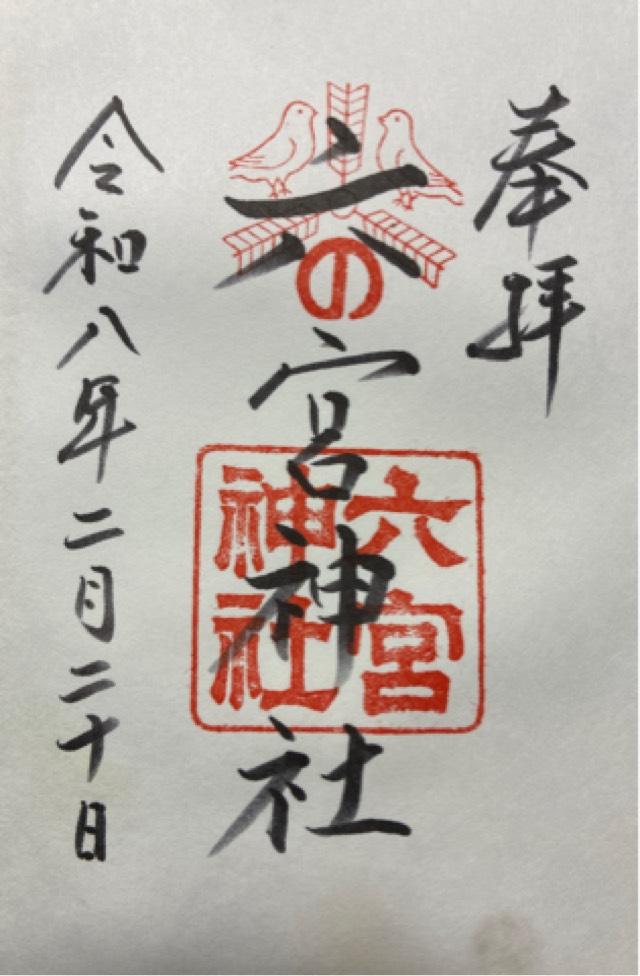 奉拝
六の宮神社
六宮
神社
令和八年二月二十日